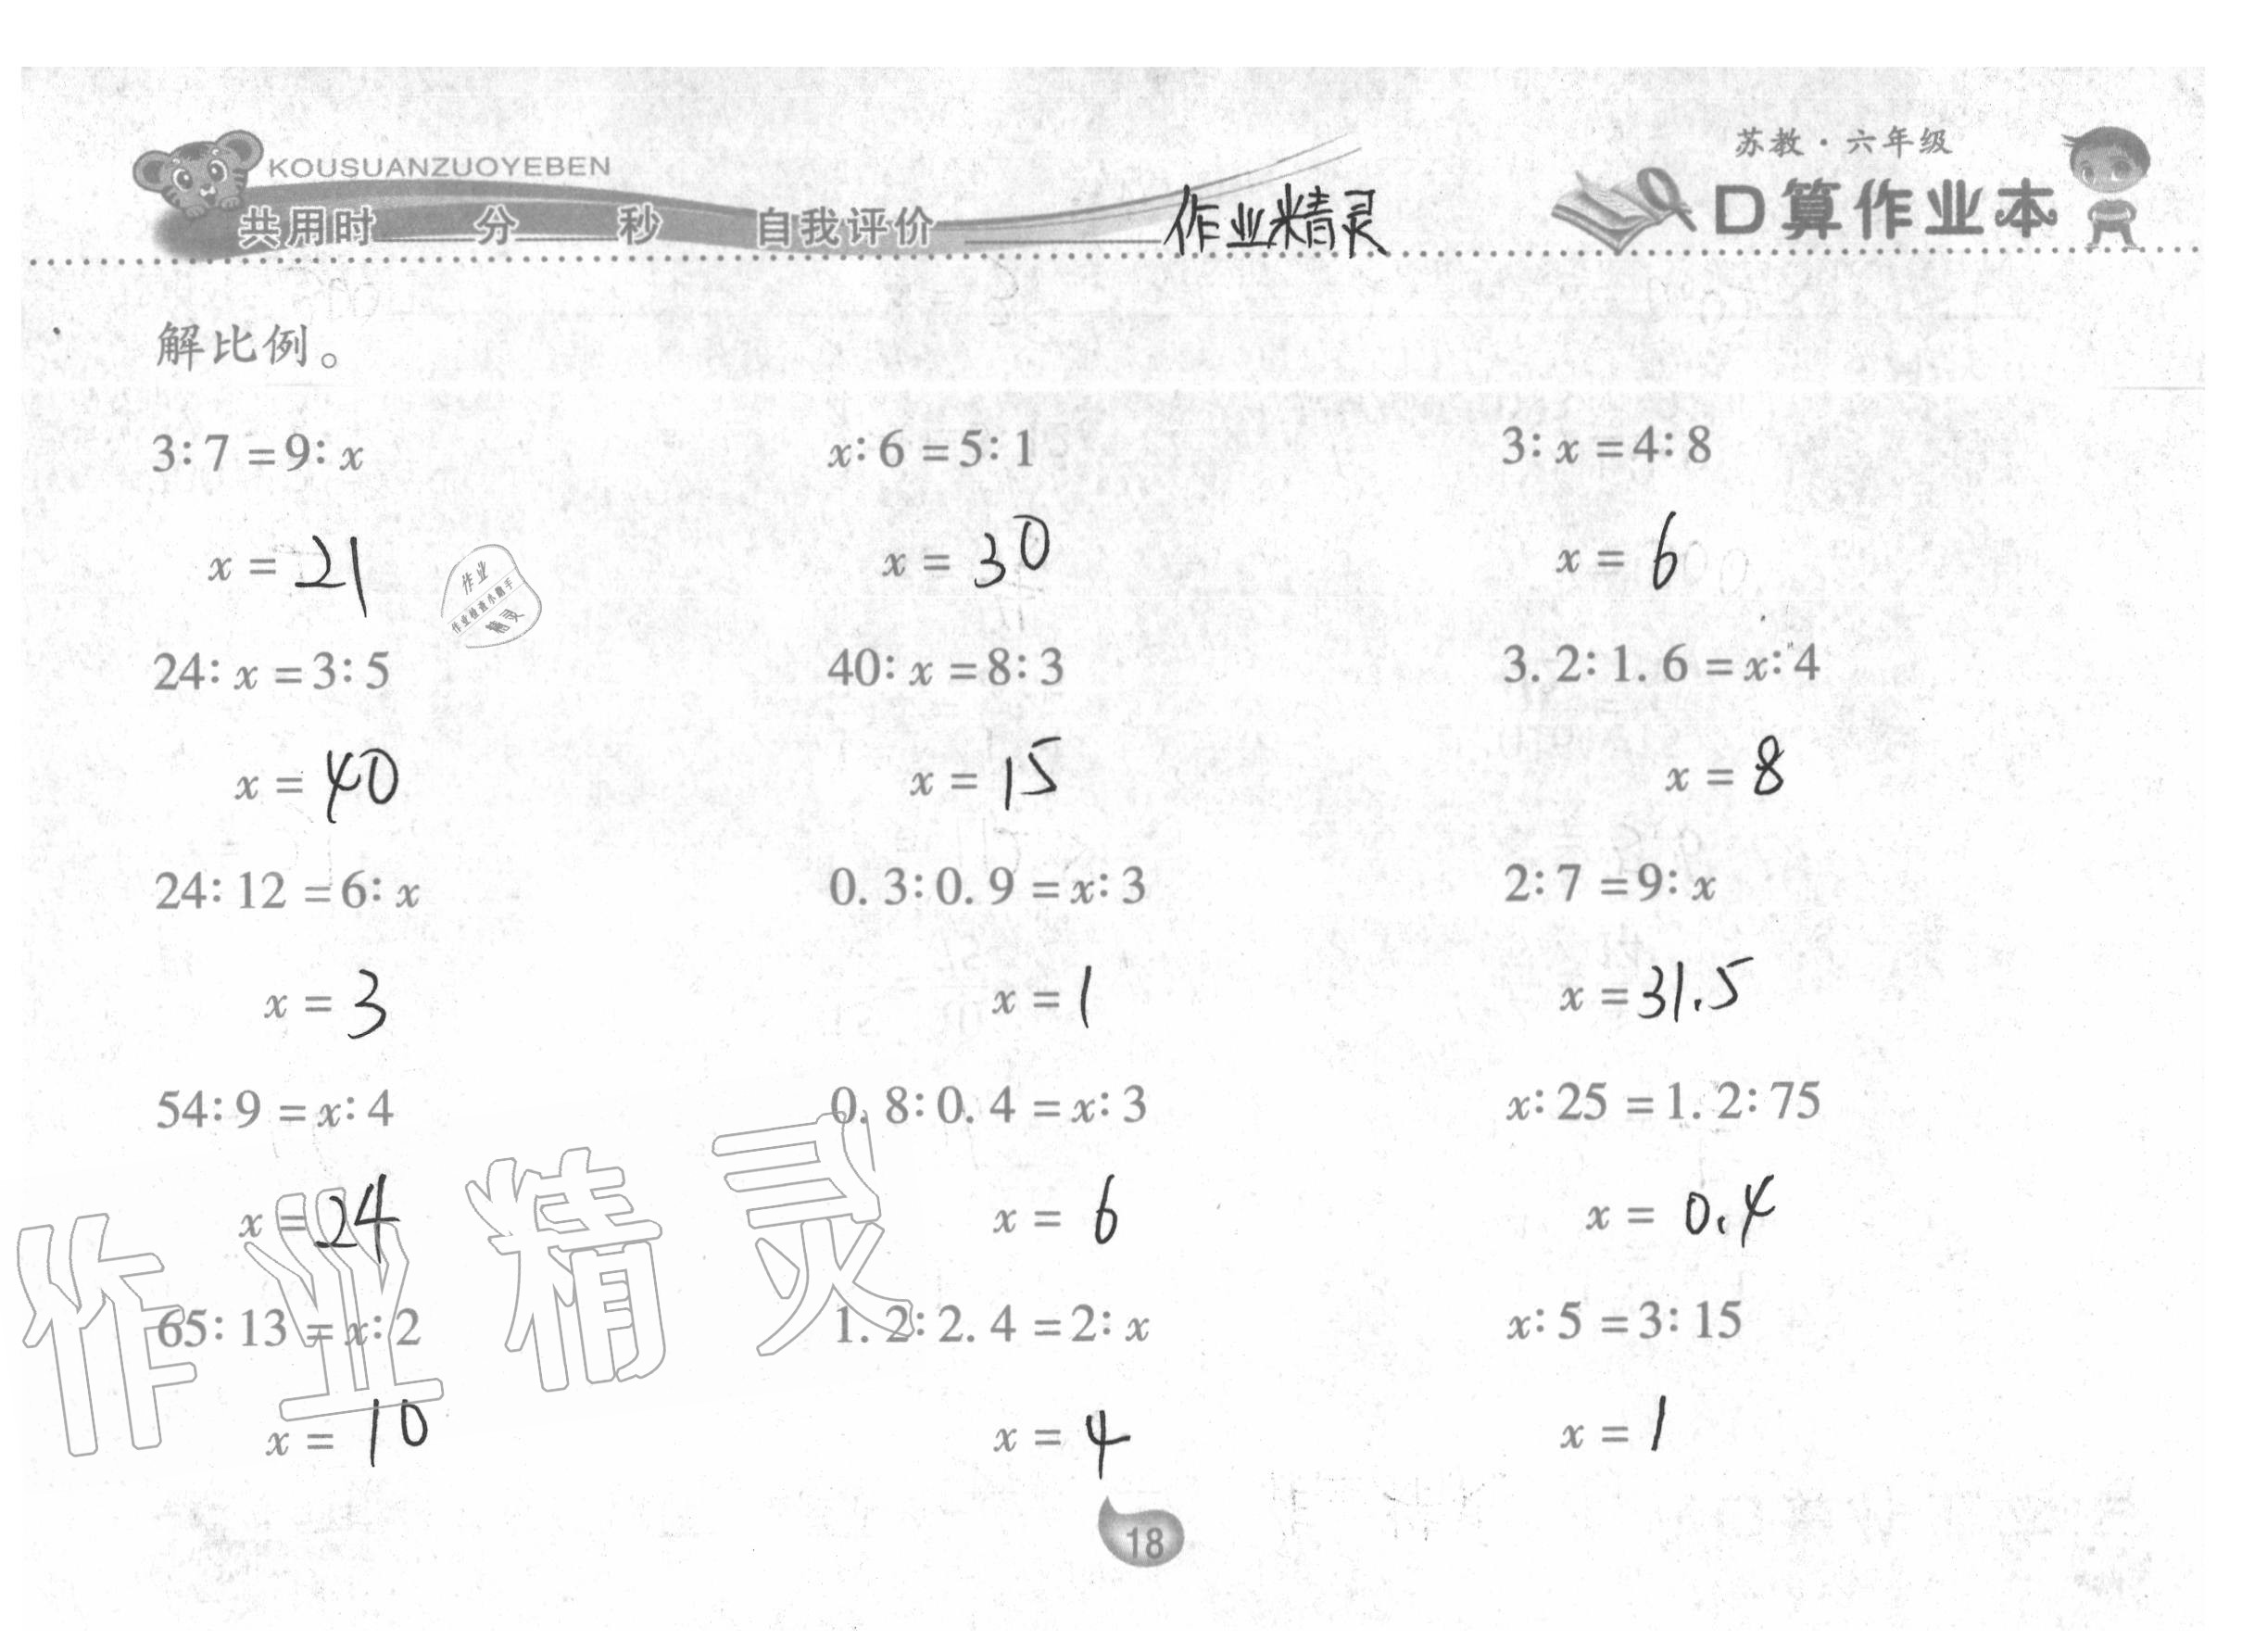 KOUSUANZUOYEBEN
苏教·六年级
口算作业本
共用时 分 秒 自我评价 作业精灵
解比例。
3:7=9:x x:6=5:1 3:x=4:8
x=21 x=30 x=6
作业
作业检查小助手
精灵
24:x=3:5 40:x=8:3 3.2:1.6=x:4
x=40 x=15 x=8
24:12=6:x 0.3:0.9=x:3 2:7=9:x
x=3 x=1 x=31.5
54:9=x:4 0.8:0.4=x:3 x:25=1.2:75
x=24 x=6 x=0.4
作业精灵
65:13=x:2 1.2:2.4=2:x x:5=3:15
x=10 x=4 x=1
18